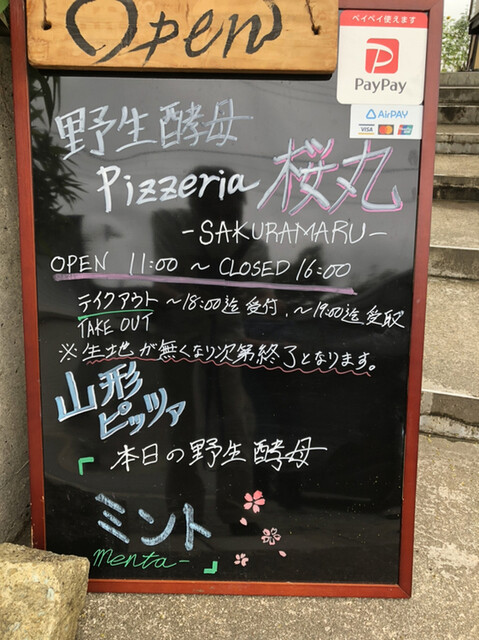 Open
ペイペイ使えます
PayPay
AirPAY
VISA
野生酵母
Pizzeria 桜丸
-SAKURAMARU-
OPEN 11:00 ~ CLOSED 16:00
テイクアウト ~18:00迄受付、~19:00迄受取
TAKE OUT
※生地が無くなり次第終了となります。
山形
ピッツァ
「本日の野生酵母
ミント
menta- 」